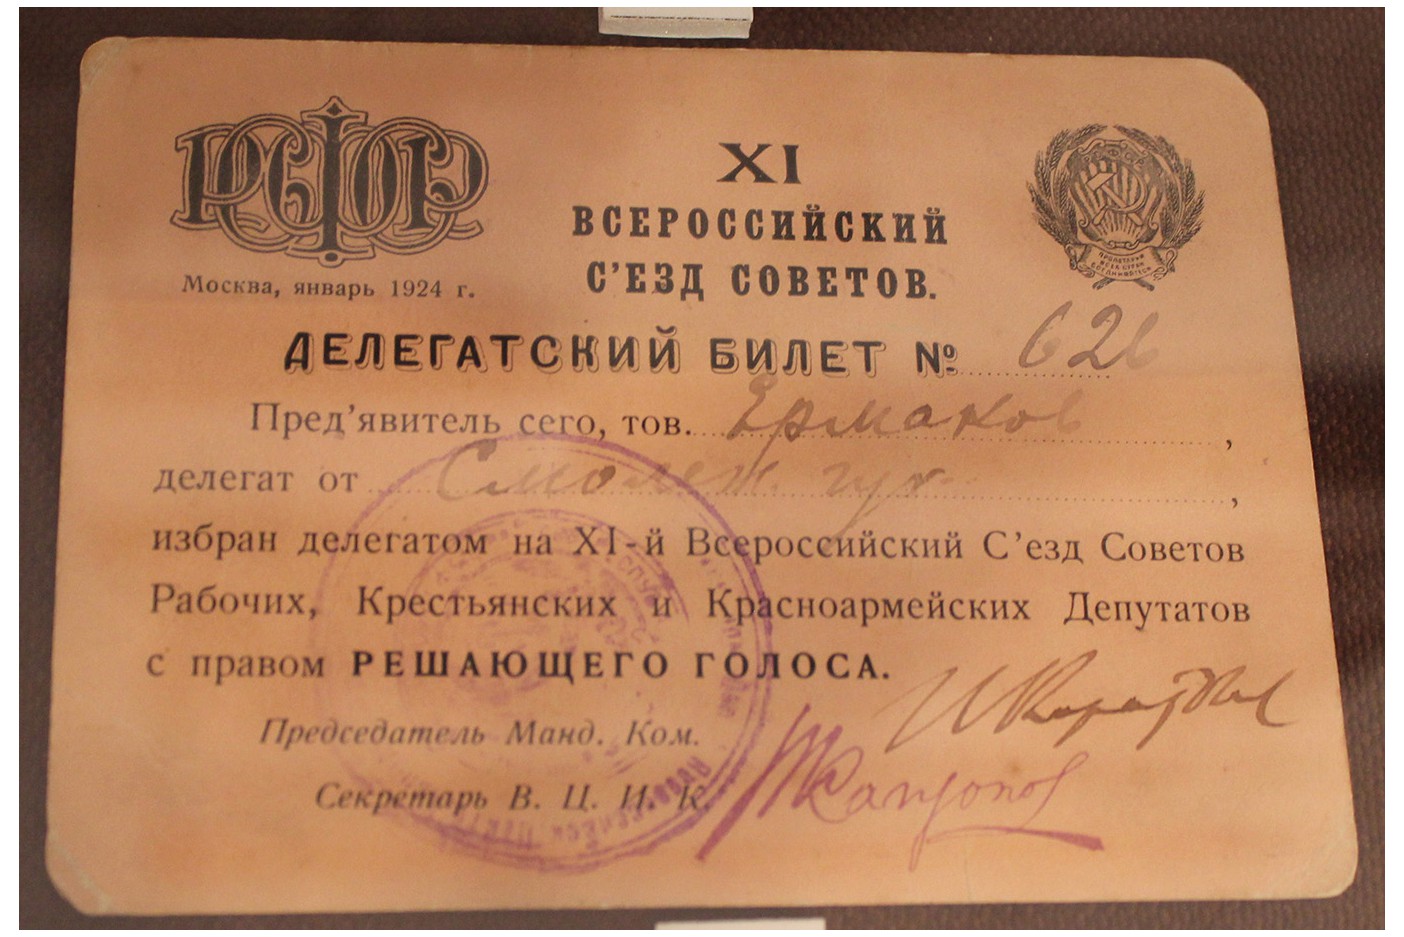 РСФСР
XI
ВСЕРОССИЙСКИЙ
С'ЕЗД СОВЕТОВ.
Москва, январь 1924 г.
ПРОЛЕТАРИИ
ВСЕХ СТРАН
СОЕДИНЯЙТЕСЬ
ДЕЛЕГАТСКИЙ БИЛЕТ № 626
Пред'явитель сего, тов. Ермаков,
делегат от Смоленск. губ.,
избран делегатом на XI-й Всероссийский С'езд Советов
Рабочих, Крестьянских и Красноармейских Депутатов
с правом РЕШАЮЩЕГО ГОЛОСА.
Председатель Манд. Ком.
Секретарь В. Ц. И. К.